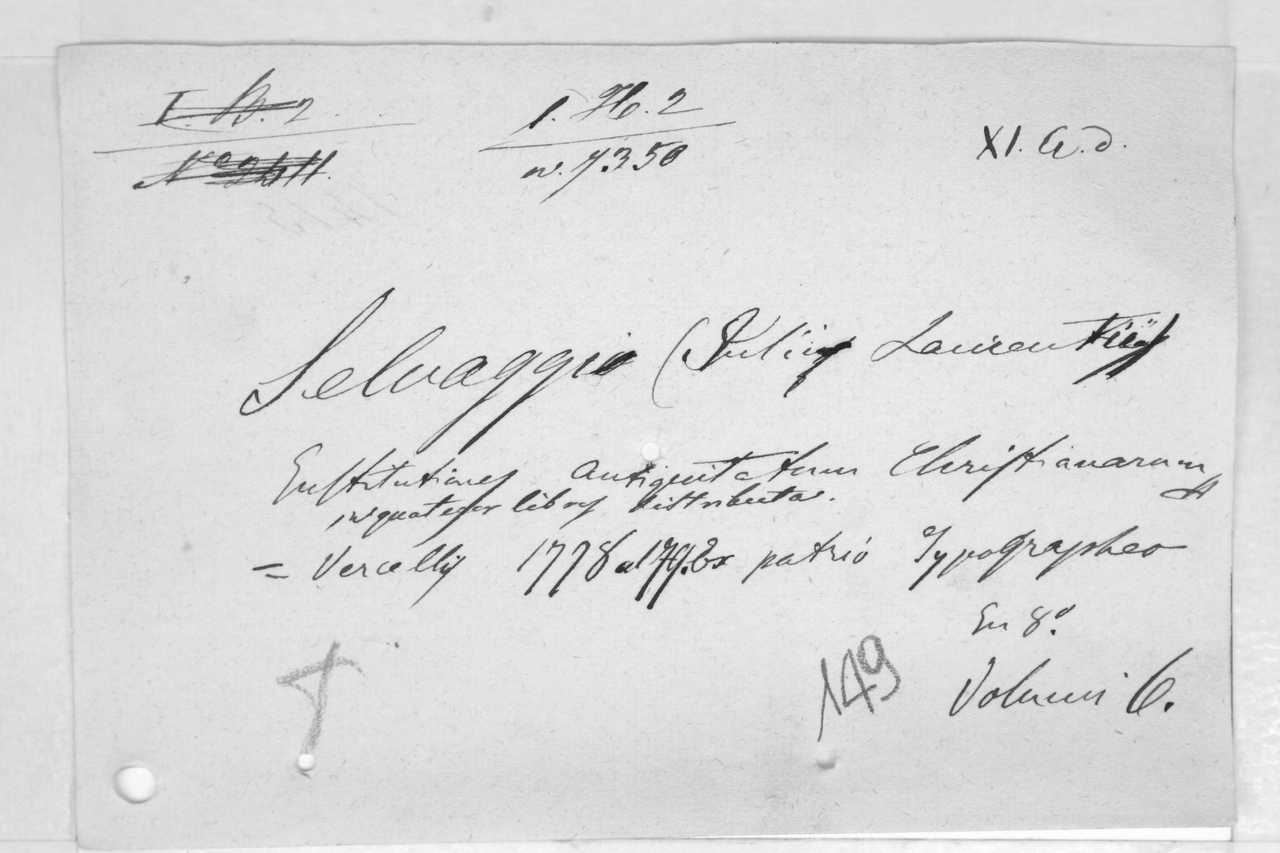 I. B. 2
I. H. 2
XI. A. d.
No 2411.
n. 7.350
Selvaggio (Julius Laurentius)
Institutiones Antiquitatum Christianarum
in quatuor libros distributa.
= Vercellis 1778 al 79. Ex patrio Typographeo
In 8º.
149
Volumi 6.